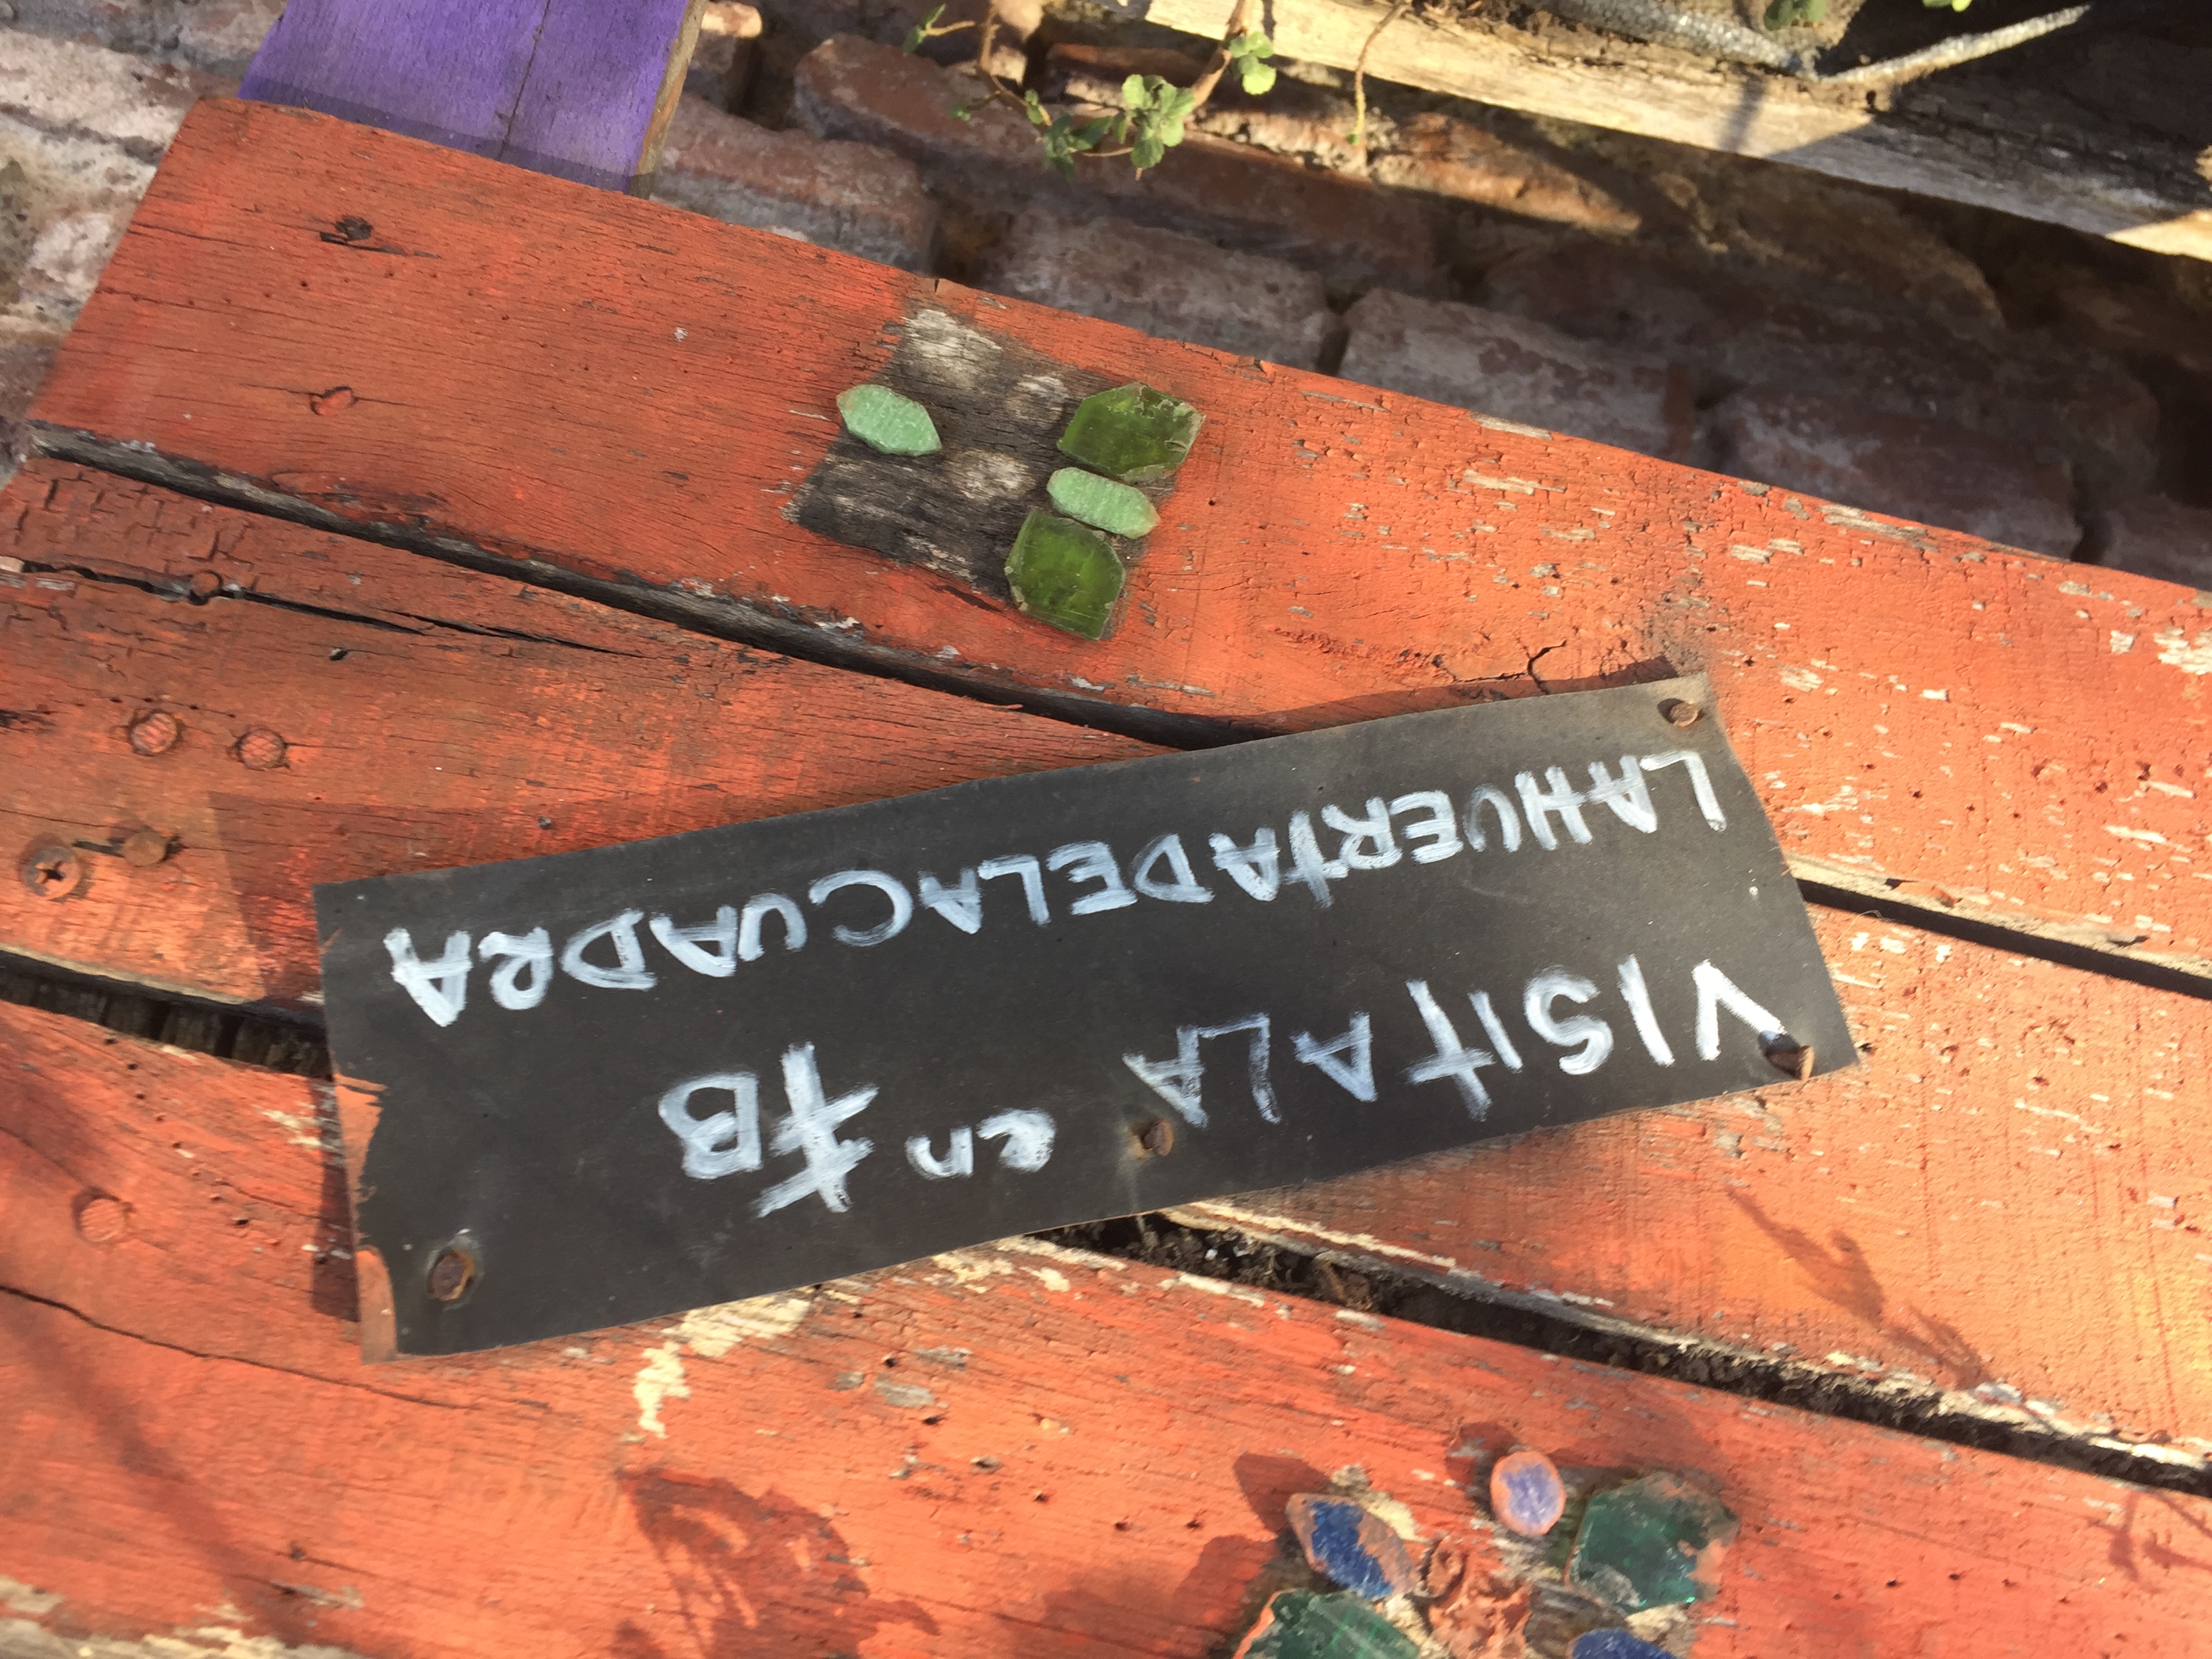 VISITALA en FB
LAHUERTADELACUADRA